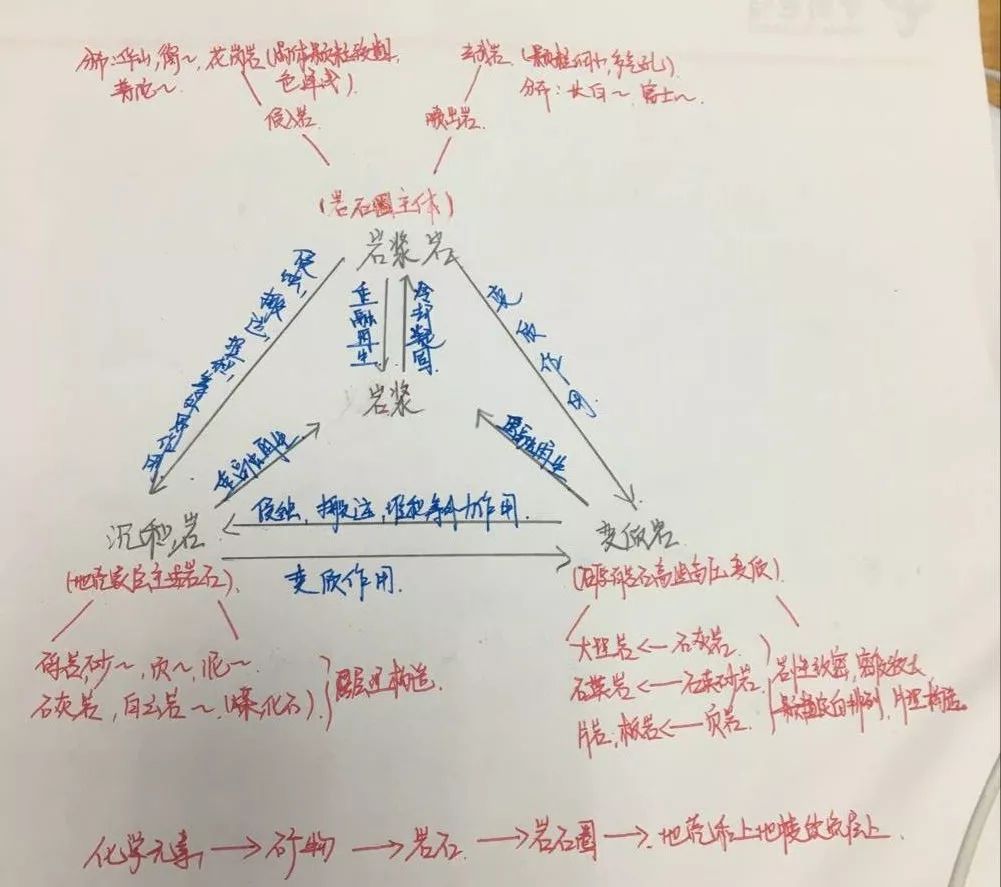 分布：华山，衡~，花岗岩（晶体颗粒较粗，
普陀~
色泽浅）
玄武岩（颗粒细小，多气孔）
分布：长白~，富士~
侵入岩
喷出岩
（岩石圈主体）
岩浆岩
侵蚀，搬运，堆积，等外力作用
重融再生
冷却凝固
变质作用
岩浆
重融再生
重融再生
侵蚀，搬运，堆积等外力作用
沉积岩
变质岩
变质作用
（地壳表层主要岩石）
砾岩，砂~，页~，泥~
石灰岩，白云岩~（煤，化石）
层理构造
高温高压变质）
大理岩←石灰岩
石英岩←石英砂岩
片岩，板岩←页岩
致密，密度较大，
颗粒定向排列，片理构造。
化学元素→矿物→岩石→岩石圈→地壳和上地幔软流层上